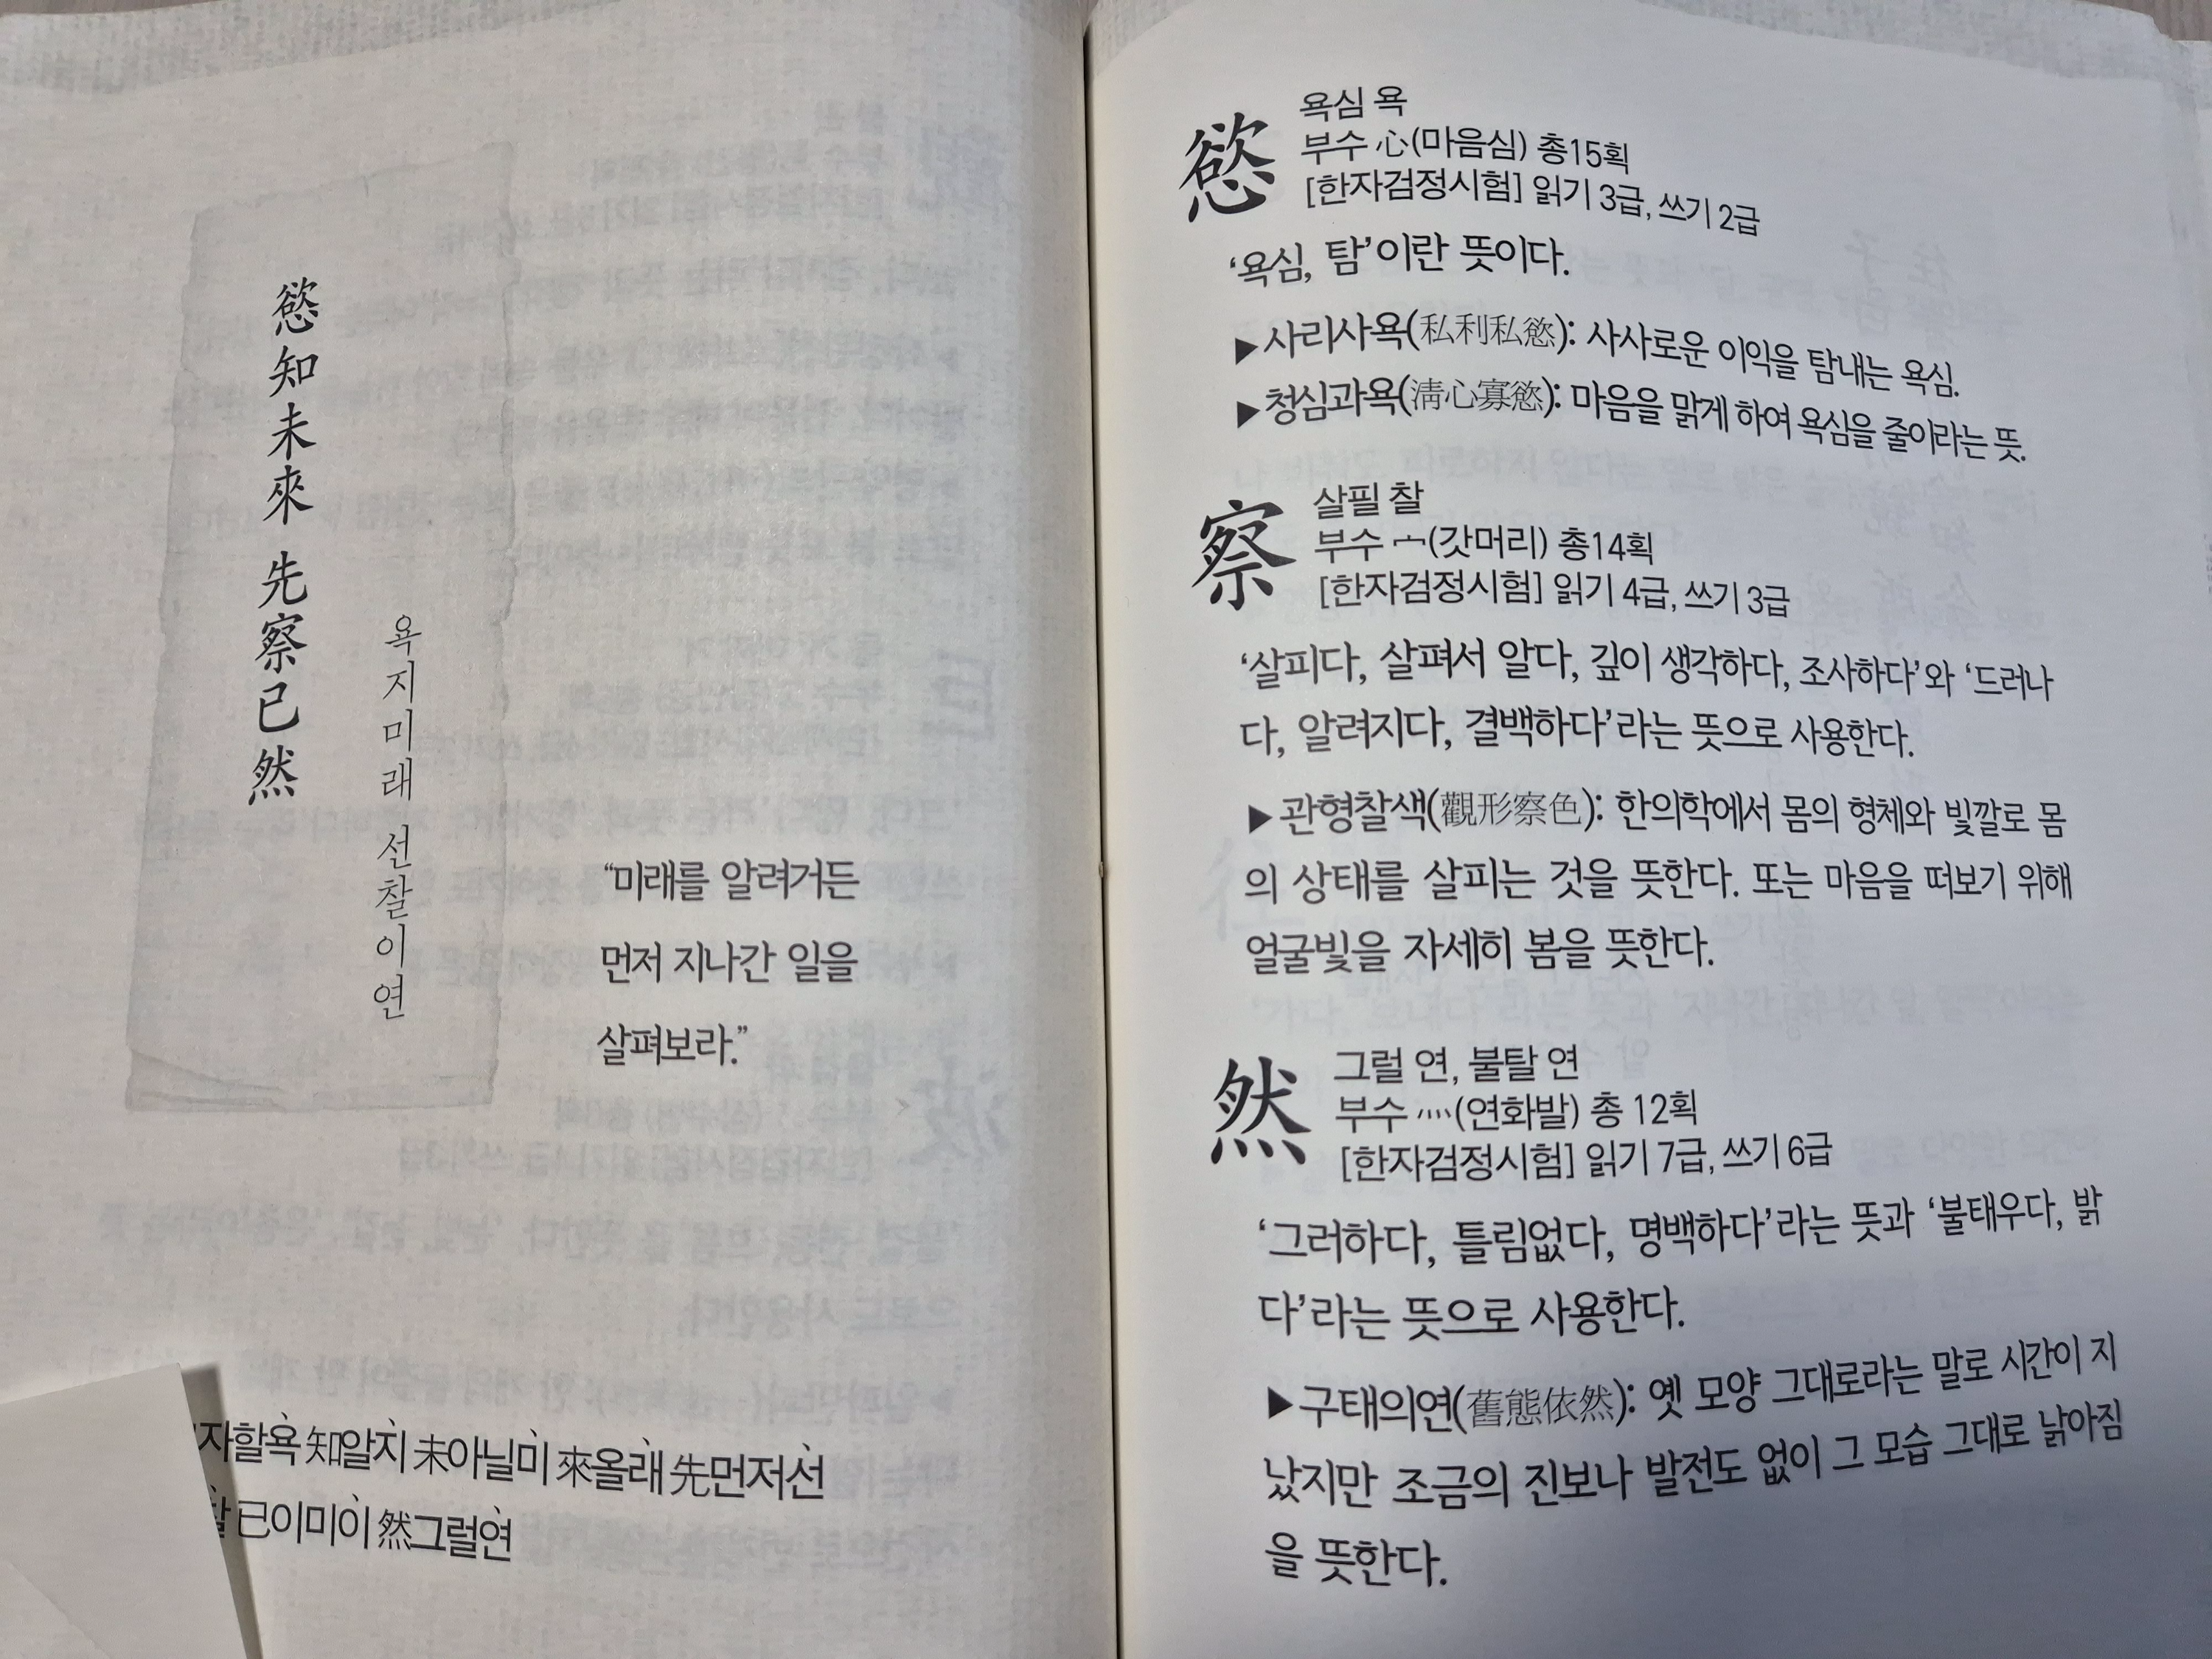 慾知未來 先察已然
욕지미래 선찰이연
“미래를 알려거든
먼저 지나간 일을
살펴보라.”
자할욕 知알지 未아닐미 來올래 先먼저선
찰 已이미이 然그럴연
慾 욕심 욕
부수 心(마음심) 총15획
[한자검정시험] 읽기 3급, 쓰기 2급
‘욕심, 탐’이란 뜻이다.
▶사리사욕(私利私慾): 사사로운 이익을 탐내는 욕심.
▶청심과욕(淸心寡慾): 마음을 맑게 하여 욕심을 줄이라는 뜻.
察 살필 찰
부수 宀(갓머리) 총14획
[한자검정시험] 읽기 4급, 쓰기 3급
‘살피다, 살펴서 알다, 깊이 생각하다, 조사하다’와 ‘드러나
다, 알려지다, 결백하다’라는 뜻으로 사용한다.
▶관형찰색(觀形察色): 한의학에서 몸의 형체와 빛깔로 몸
의 상태를 살피는 것을 뜻한다. 또는 마음을 떠보기 위해
얼굴빛을 자세히 봄을 뜻한다.
然 그럴 연, 불탈 연
부수 灬(연화발) 총 12획
[한자검정시험] 읽기 7급, 쓰기 6급
‘그러하다, 틀림없다, 명백하다’라는 뜻과 ‘불태우다, 밝
다’라는 뜻으로 사용한다.
▶구태의연(舊態依然): 옛 모양 그대로라는 말로 시간이 지
났지만 조금의 진보나 발전도 없이 그 모습 그대로 낡아짐
을 뜻한다.